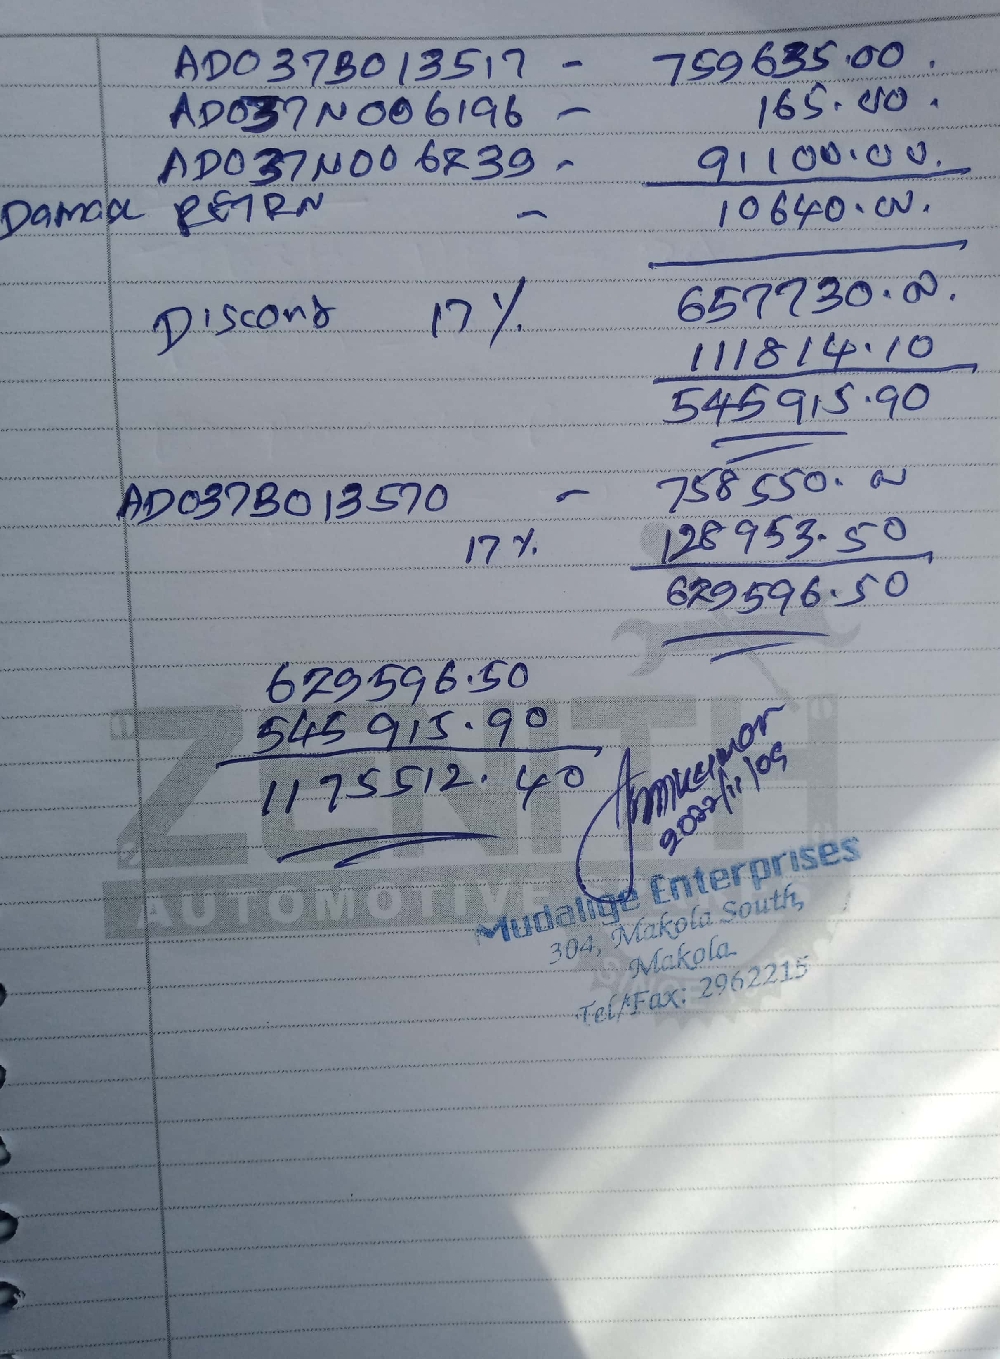 AD037B013517 - 759635.00.
AD037N006196 - 165.00.
AD037N006239 - 91100.00.
RETRN - 10640.00.
657730.00.
Discond 17%
111814.10
545915.90
AD037B013570 - 758550.00
17% 128953.50
629596.50
629596.50
545915.90
1175512.40
2022/11/09
ZENITH
AUTOMOTIVE
Mudalige Enterprises
304, Makola South,
Makola.
Tel/Fax: 2962215